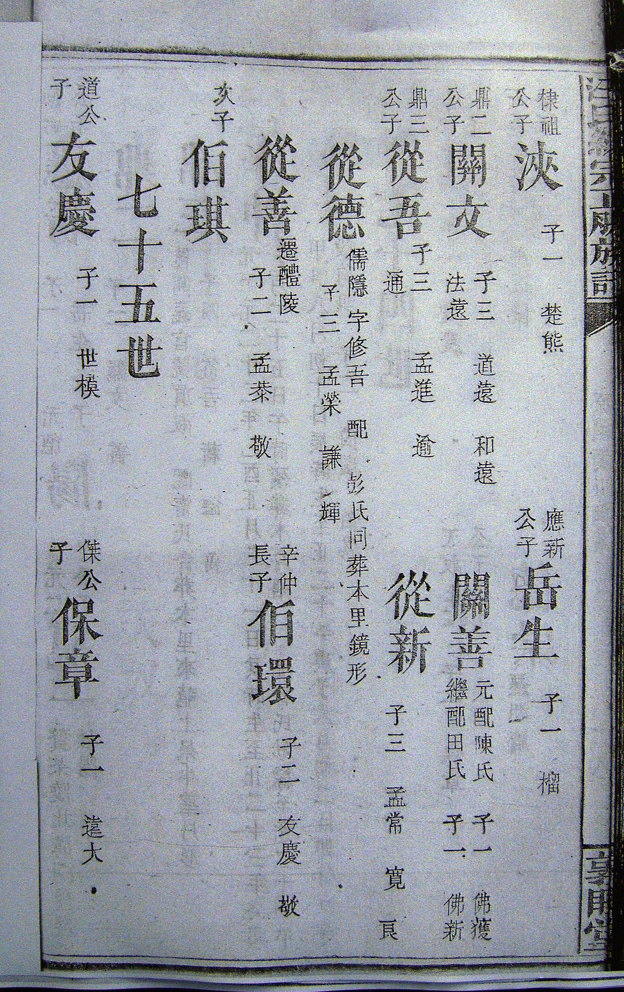 棣祖公子 浹 子一 楚熊
應新公子 岳生 子一 榴
鼎二公子 關文 子三 法遠 道遠 和遠
關善 元配陳氏 子一 佛獲 繼配田氏 子一 佛新
鼎三公子 從吾 子三 通 孟進 逾
從新 子三 孟常 寬 良
從德 儒隱 字修吾 配彭氏同葬本里鏡形 子三 孟榮 謙 輝
從善 遷醴陵 子二 孟泰 敬
辛仲長子 伯環 子二 友慶 敬
次子 伯琪
七十五世
道公子 友慶 子一 世模
傑公子 保章 子一 遠大